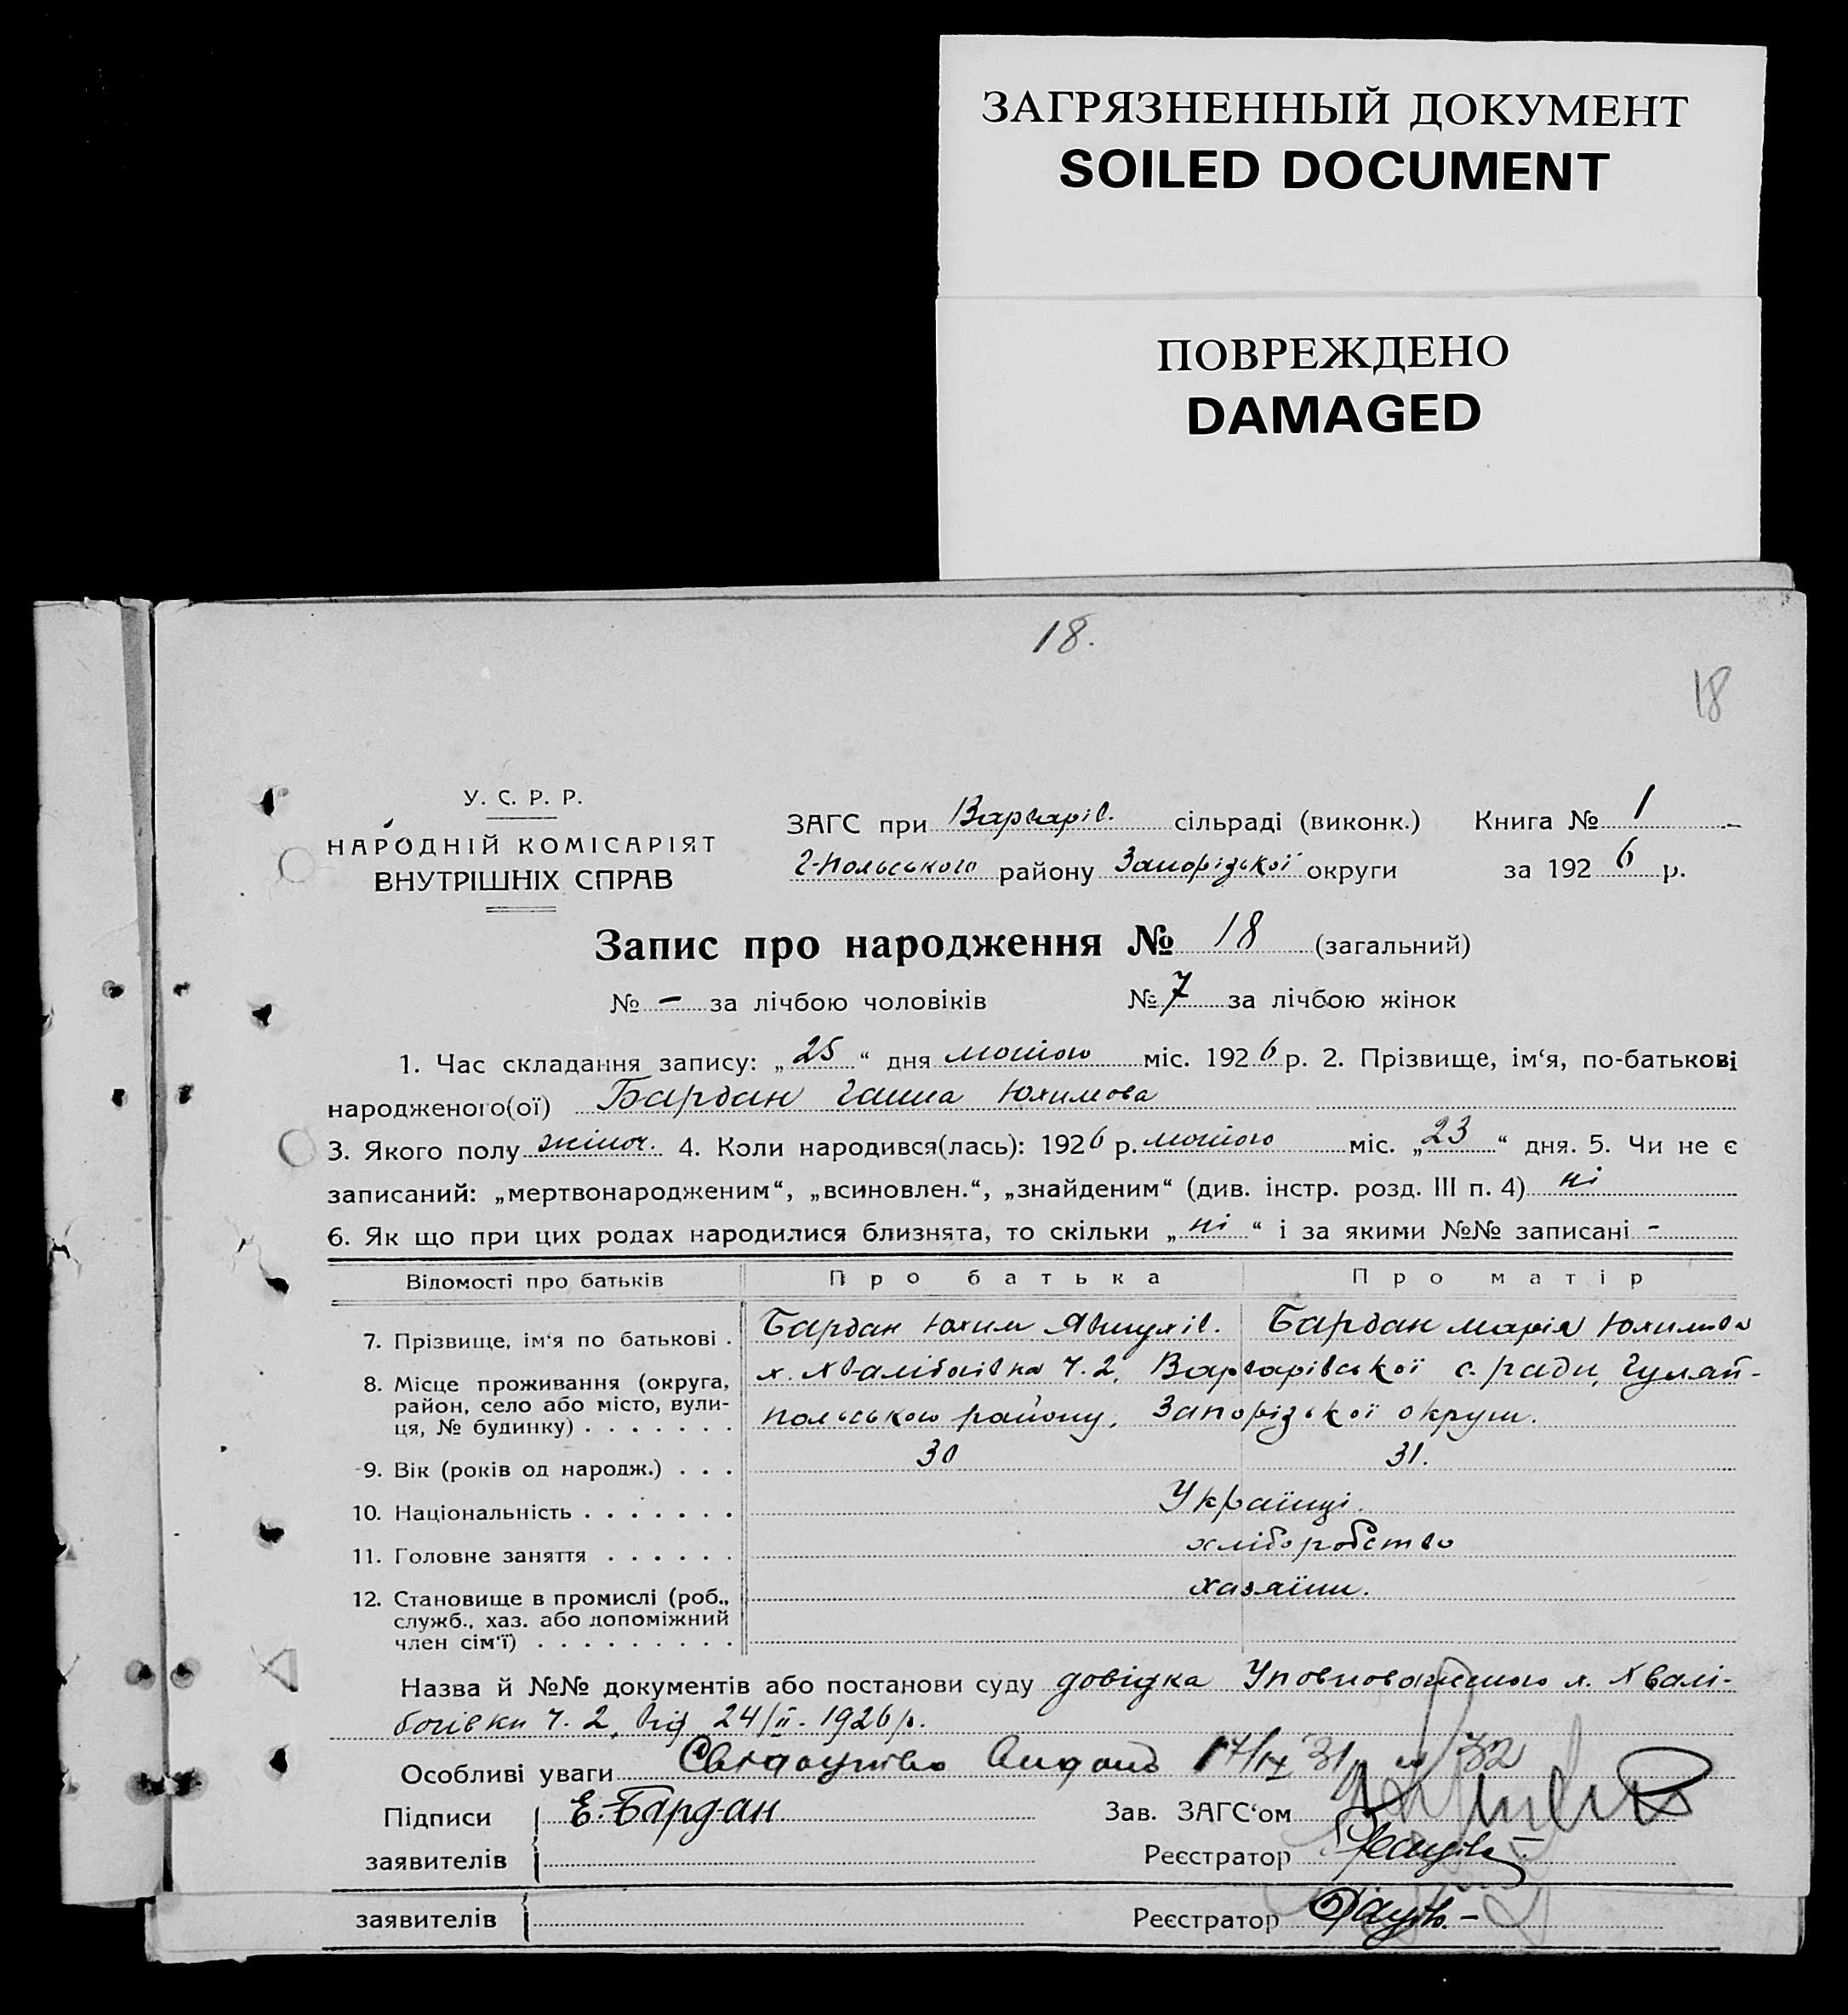 ЗАГРЯЗНЕННЫЙ ДОКУМЕНТ
SOILED DOCUMENT
ПОВРЕЖДЕНО
DAMAGED
18.
18
У. С. Р. Р.
НАРОДНІЙ КОМІСАРІЯТ
ВНУТРІШНІХ СПРАВ
ЗАГС при Варварів. сільраді (виконк.) Книга № 1
Г-Польського району Запорізької округи за 1926 р.
Запис про народження № 18 (загальний)
№ - за лічбою чоловіків № 7 за лічбою жінок
1. Час складання запису: „25“ дня лютого міс. 1926 р. 2. Прізвище, ім‘я, по-батькові
народженого(ої) Бардан Ганна Юхимова
3. Якого полу жіноч. 4. Коли народився(лась): 1926 р. лютого міс. „23“ дня. 5. Чи не є
записаний: „мертвонародженим“, „всиновлен.“, „знайденим“ (див. інстр. розд. III п. 4) ні
6. Як що при цих родах народилися близнята, то скільки „ні“ і за якими №№ записані -
Відомості про батьків Про батька Про матір
7. Прізвище, ім‘я по батькові . Бардан Юхим Явтухів. Бардан Марія Юхимова
8. Місце проживання (округа, х. Хвалібогівка Ч. 2, Варварівської с. ради, Гуляй-
район, село або місто, вули-
ця, № будинку) . . . . . . . польського району, Запорізької округи.
9. Вік (років од народж.) . . . 30 31.
10. Національність . . . . . . . Українці.
11. Головне заняття . . . . . . хліборобство
12. Становище в промислі (роб., хазяїни.
служб., хаз. або допоміжний
член сім‘ї) . . . . . . . . .
Назва й №№ документів або постанови суду довідка Уповноваженого х. Хвалі-
богівки Ч. 2, від 24/II - 1926 р.
Особливі уваги 17/IX 31 32
Підписи Е. Бардан Зав. ЗАГС‘ом
заявителів Реєстратор
заявителів Реєстратор